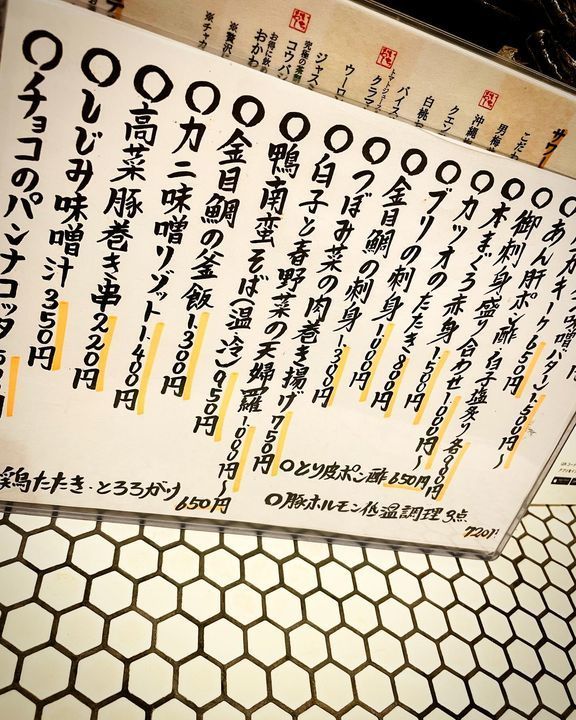 あん肝ポン酢 650円
御刺身盛り合わせ 1.000円~
本まぐろ赤身 1.500円
カツオのたたき 800円
ブリの刺身 1.000円
金目鯛の刺身 1.300円
つぼみ菜の肉巻き揚げ 750円
白子と春野菜の天婦羅 1.000円~
鴨南蛮そば(温・冷) 950円
金目鯛の釜飯 1.300円
カニ味噌リゾット 1.400円
高菜豚巻き串 220円
しじみ味噌汁 350円
チョコのパンナコッタ
とり皮ポン酢 650円
豚ホルモン低温調理3点 720円
鶏たたき・とろろがけ 650円
サワー
こだわ
男梅
沖縄
クエン
白桃
バイス
トマトジュース
クラマ
ウーロ
ジャスミ
究極の茶割
コウバ
お得に飲め
おかわ
※贅沢
※チャカ